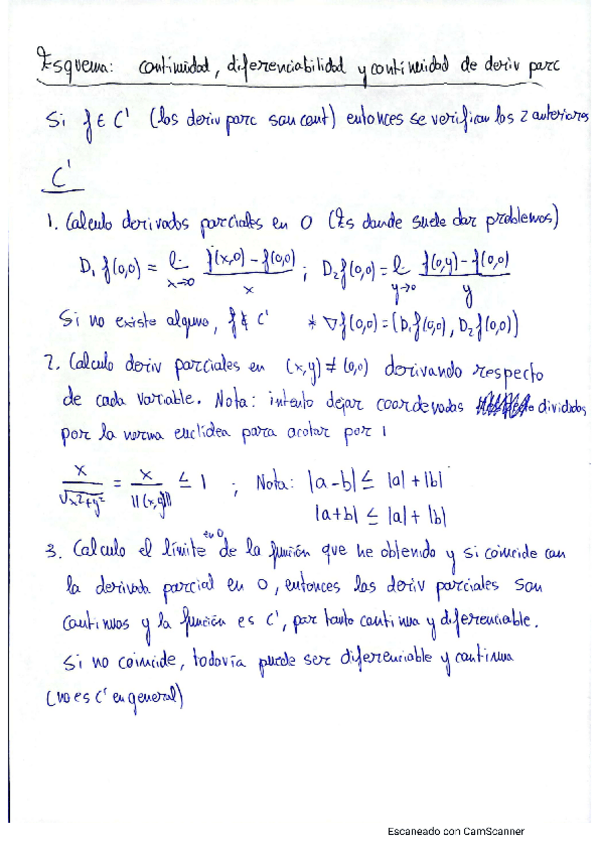 Esquema: continuidad, diferenciabilidad y continuidad de deriv parc
Si f ∈ C' (las deriv parc son cont) entonces se verifican los 2 anteriores
C'
1. Calculo derivadas parciales en 0 (Es donde suele dar problemas)
D₁ f(0,0) = lim_{x→0} (f(x,0) - f(0,0))/x ; D₂ f(0,0) = lim_{y→0} (f(0,y) - f(0,0))/y
Si no existe alguna, f ∉ C' * ∇f(0,0) = (D₁f(0,0), D₂f(0,0))
2. Calculo deriv parciales en (x,y) ≠ (0,0) derivando respecto
de cada variable. Nota: intento dejar coordenadas divididas
por la norma euclidea para acotar por 1
x/√(x²+y²) = x/||(x,y)|| ≤ 1 ; Nota: |a-b| ≤ |a| + |b|
|a+b| ≤ |a| + |b|
3. Calculo el límite en 0 de la función que he obtenido y si coincide con
la derivada parcial en 0, entonces las deriv parciales son
continuas y la función es C', por tanto continua y diferenciable.
Si no coincide, todavía puede ser diferenciable y continua
(no es C' en general)
Escaneado con CamScanner